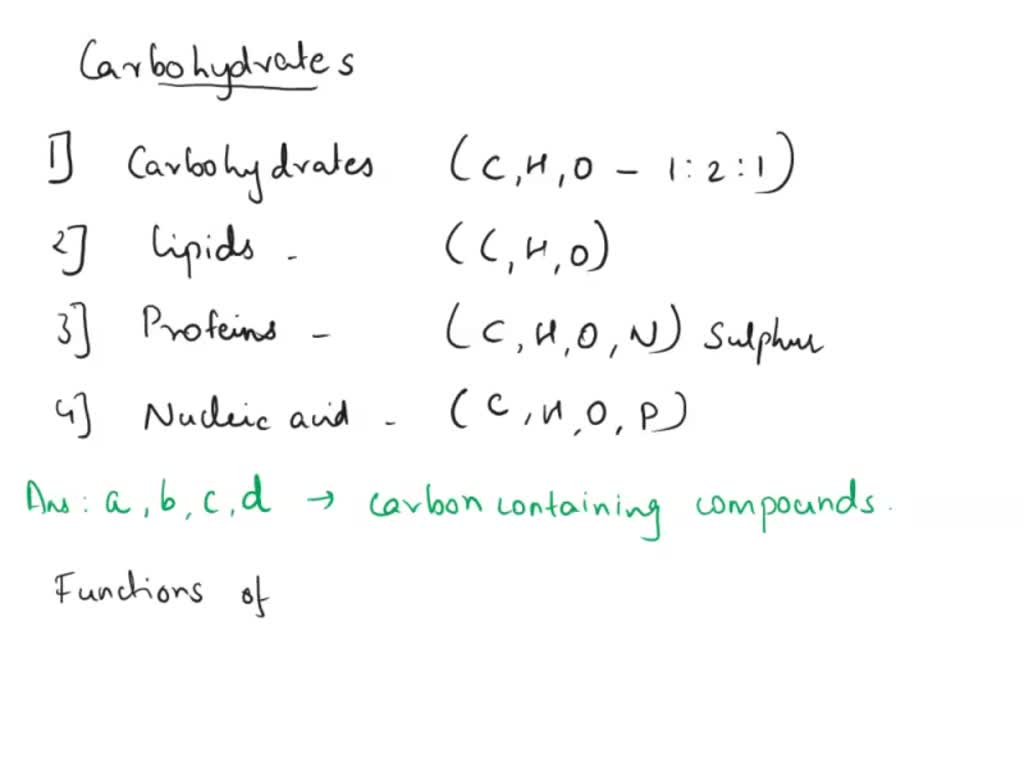 Carbohydrates
1] Carbohydrates (C, H, O - 1:2:1)
2] lipids - (C, H, O)
3] Proteins - (C, H, O, N) Sulphur
4] Nucleic acid - (C, H, O, P)
Ans: a, b, c, d → carbon containing compounds.
Functions of